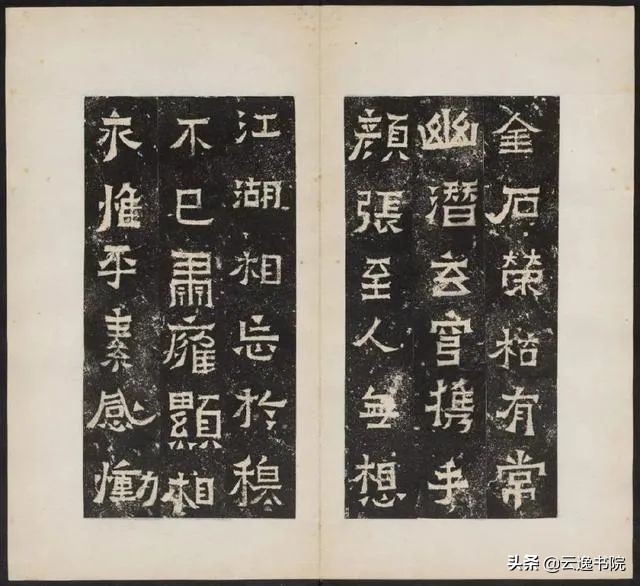 金石榮枯有常
幽潛玄宮攜手
顏張至人無想
江湖相忘於穆
不已肅雍顯相
永惟平素感慟
头条 @云逸书院